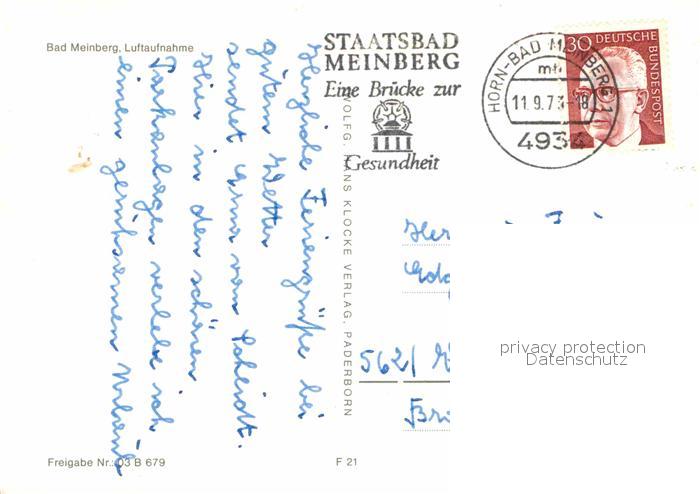 Bad Meinberg, Luftaufnahme
STAATSBAD
MEINBERG
Eine Brücke zur
Gesundheit
HORN-BAD MEINBERG 1
mb
11.9.73-18
4934
30 DEUTSCHE
BUNDESPOST
Herzliche Feriengrüße bei
gutem Wetter
sendet Erna vom Scheidt.
Hier in den schönen
Parkanlagen verlebe ich
einen geruhsamen Urlaub
WOLFG. HANS KLOCKE VERLAG, PADERBORN
Her
562/
privacy protection
Datenschutz
Freigabe Nr.: 03 B 679
F 21